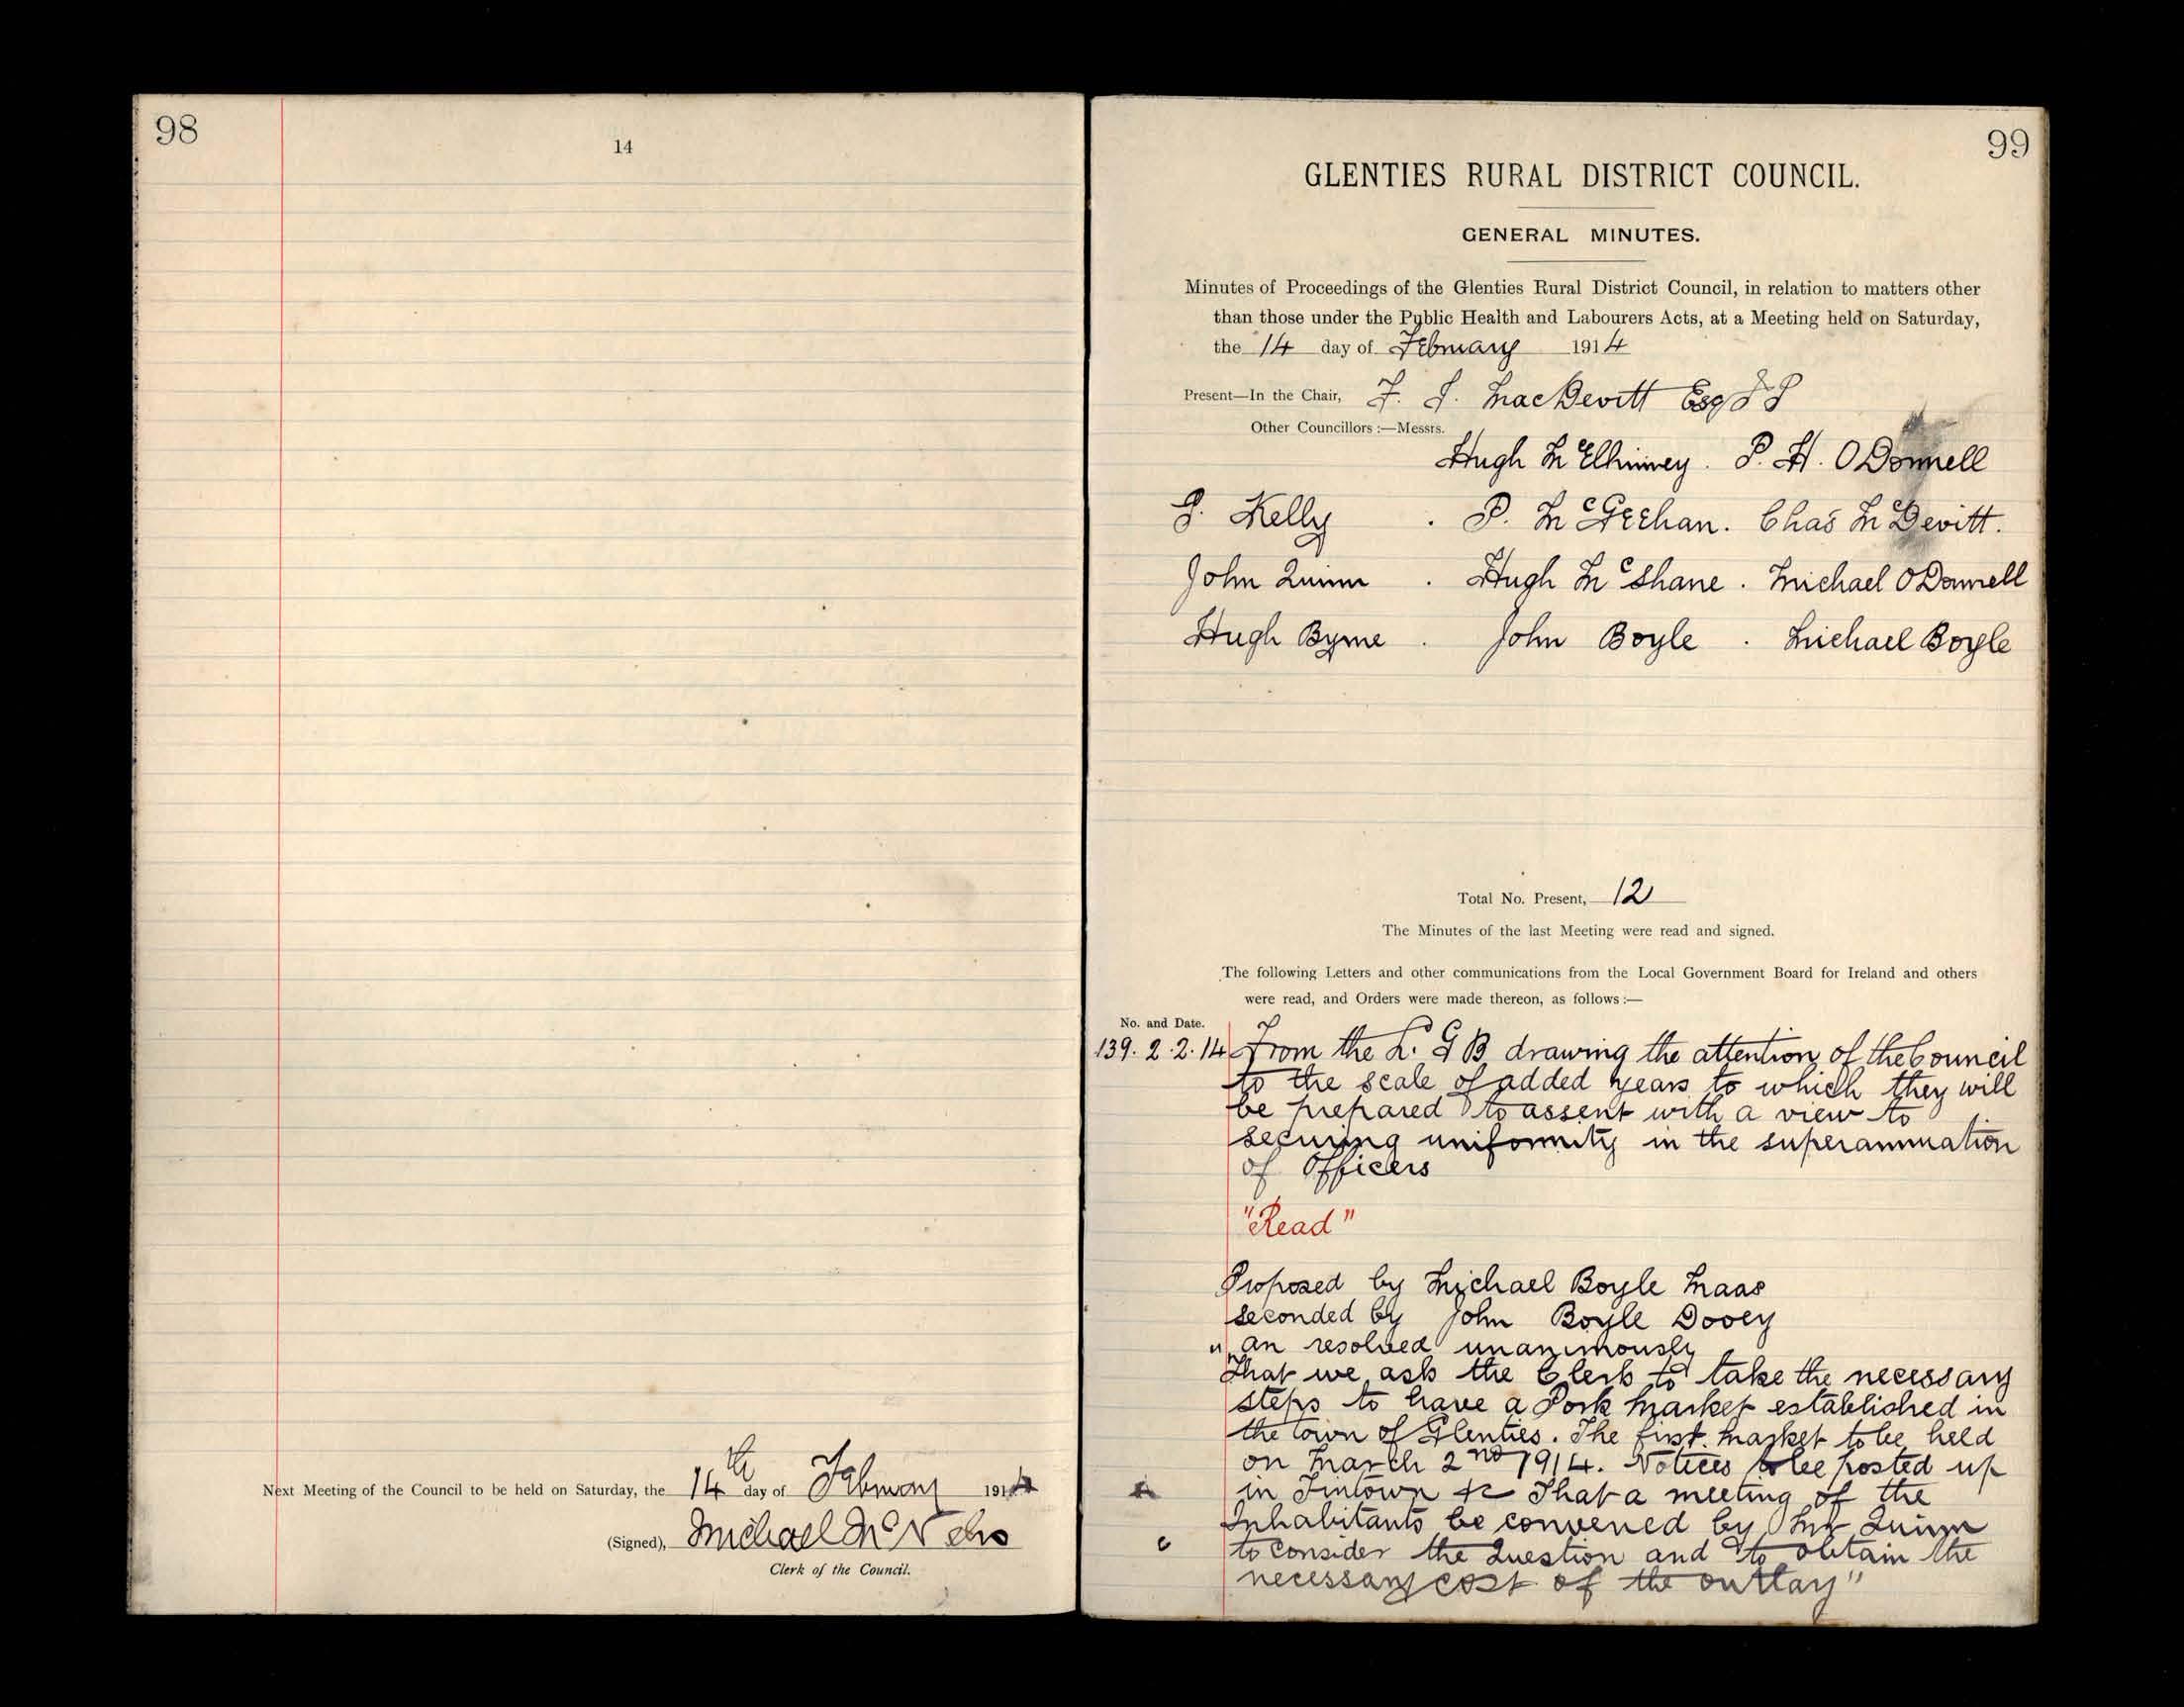 98
14
Next Meeting of the Council to be held on Saturday, the 14th day of February 1914
(Signed), Michael McNelis
Clerk of the Council.
99
GLENTIES RURAL DISTRICT COUNCIL.
GENERAL MINUTES.
Minutes of Proceedings of the Glenties Rural District Council, in relation to matters other
than those under the Public Health and Labourers Acts, at a Meeting held on Saturday,
the 14 day of February 1914
Present—In the Chair, F. J. MacDevitt Esq J P
Other Councillors :—Messrs.
Hugh McElhinney . P. H. O Donnell
J. Kelly . P. McGeehan . Chas McDevitt .
John Quinn . Hugh McShane . Michael O Donnell
Hugh Byrne . John Boyle . Michael Boyle
Total No. Present, 12
The Minutes of the last Meeting were read and signed.
The following Letters and other communications from the Local Government Board for Ireland and others
were read, and Orders were made thereon, as follows :—
No. and Date.
139. 2.2.14 From the L. G B drawing the attention of the Council
to the scale of added years to which they will
be prepared to assent with a view to
securing uniformity in the superannuation
of Officers
"Read"
Proposed by Michael Boyle Maas
Seconded by John Boyle Dooey
" an resolved unanimously
That we ask the Clerk to take the necessary
steps to have a Pork Market established in
the town of Glenties. The first Market to be held
on March 2nd 1914. Notices to be posted up
in Fintown &c That a meeting of the
Inhabitants be convened by Mr Quinn
to consider the Question and to obtain the
necessary cost of the outlay"